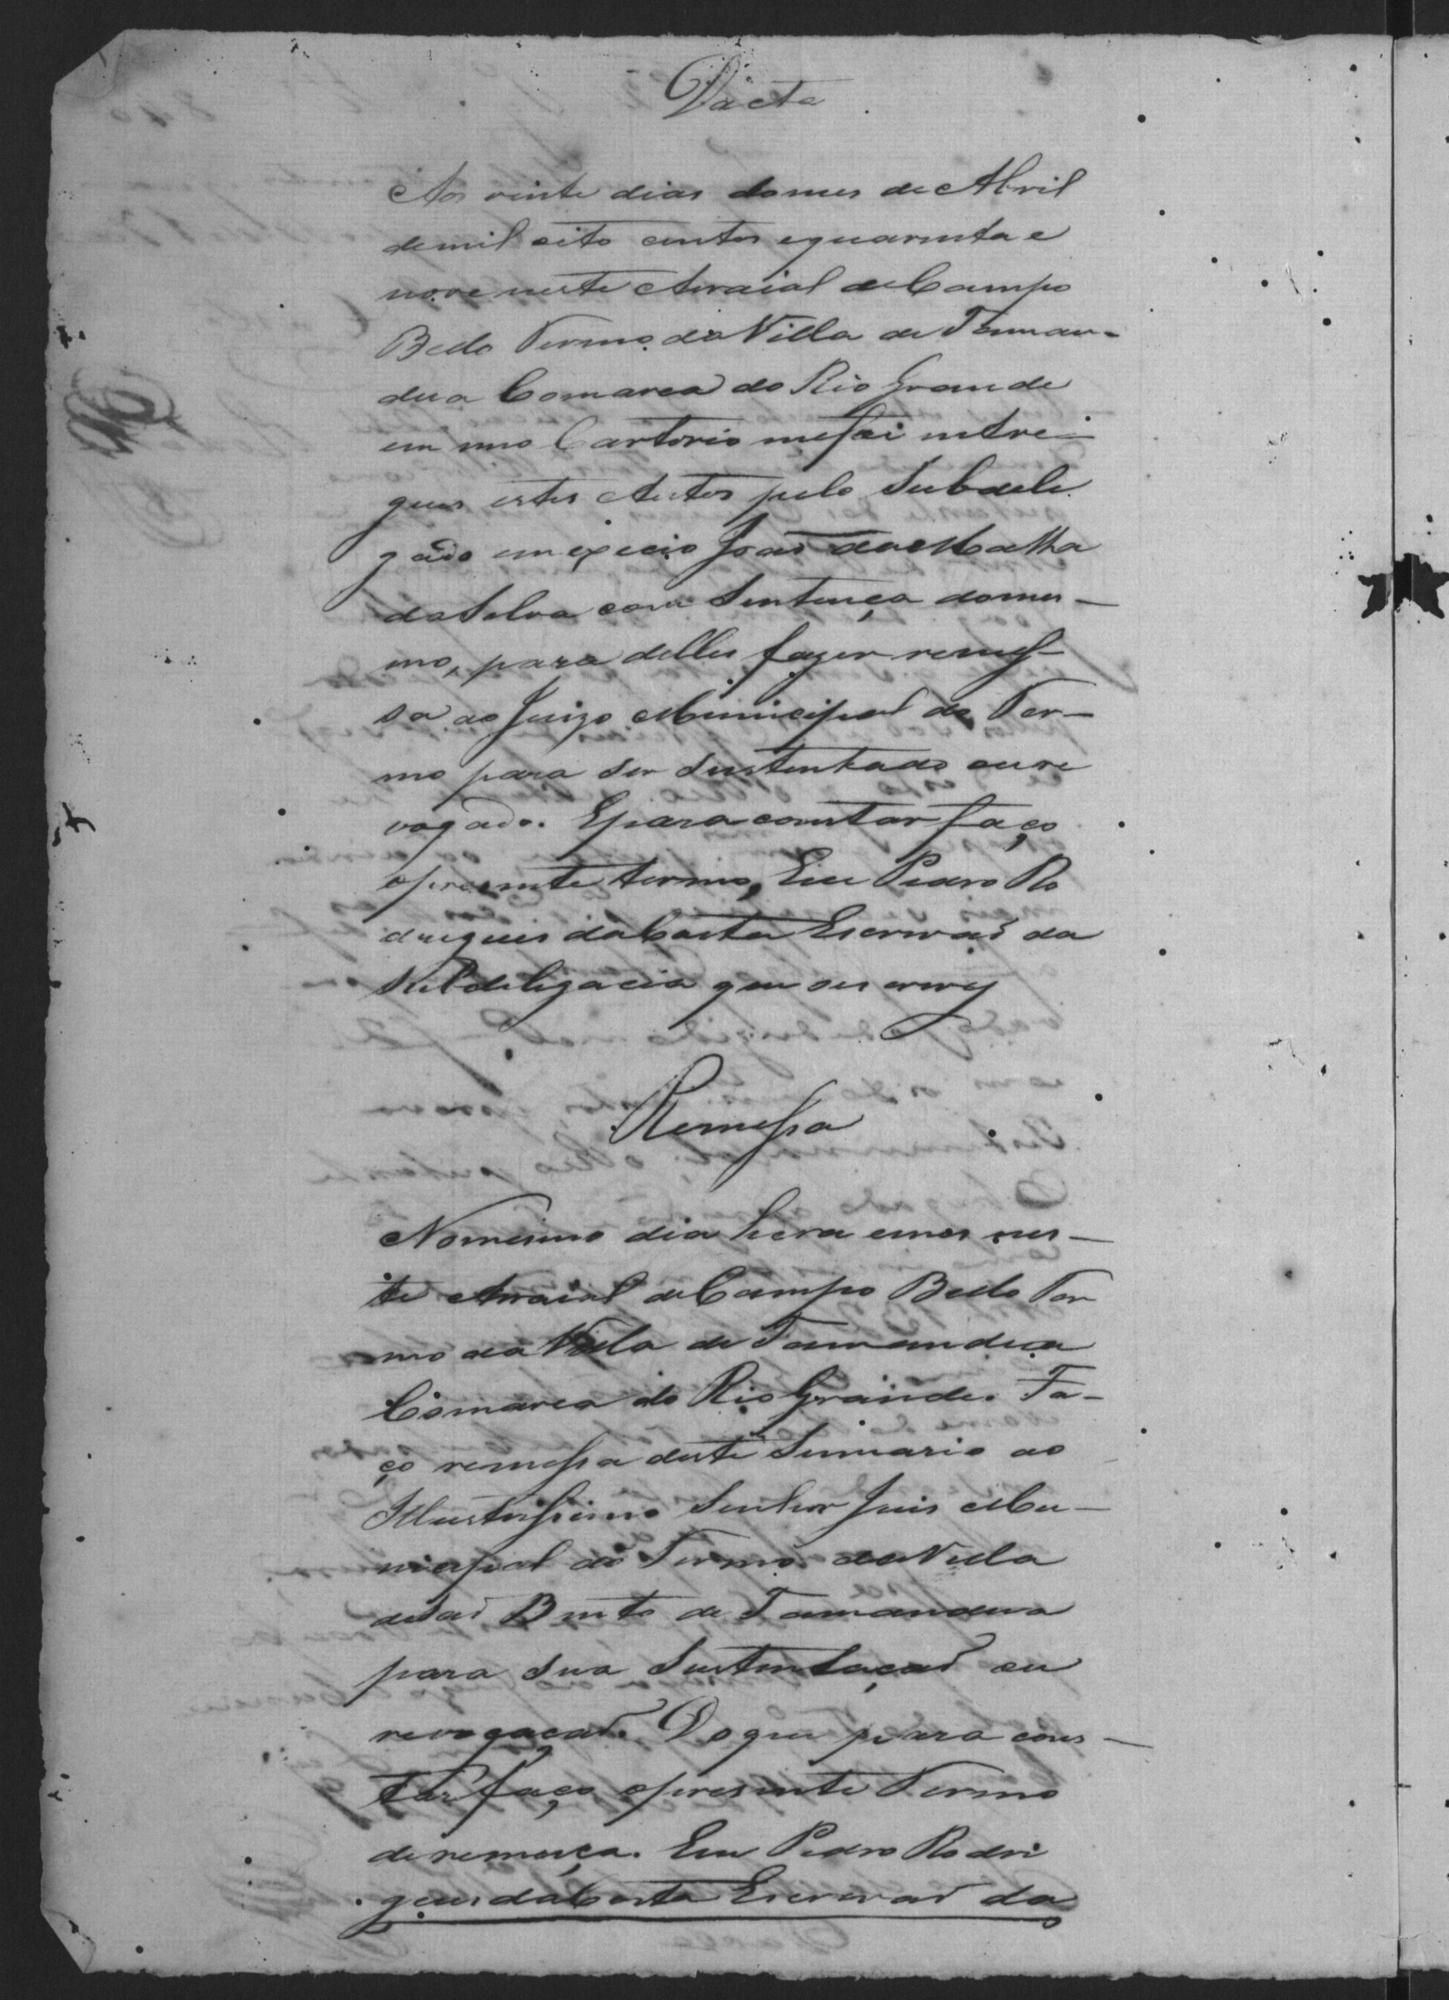 Dacta
Aos vinte dias do mes de Abril
de mil oito centos e quarenta e
nove neste Arraial de Campo
Bello Termo da Villa de Taman-
dua Comarca do Rio Grande
em meo Cartorio me foi intre-
gues estes Autos pelo Subdele
gado em exercicio Joaõ da Matta
da Silva com Sentença do mes-
mo, para delles fazer remes-
sa ao Juizo Municipal do Ter-
mo para ser sustentado ou re
vogado. E para constar faço
o presente termo, Eu Pedro Ro
drigues da Costa Escrivaõ da
Subdeligacia que o escrevy
Remessa
No mesmo dia hera e mes nes-
te Arraial de Campo Bello Ter
mo da Villa de Tamandua
Comarca do Rio Grande. Fa-
ço remessa deste Summario ao
Illustrissimo Senhor Juis Mu-
nicipal do Termo da Villa
de Saõ Bento de Tamandua
para sua sustentaçaõ ou
revogacaõ. Do que para cons-
tar faço o presente Termo
de remeça. Eu Pedro Rodri
gues da Costa Escrivaõ da